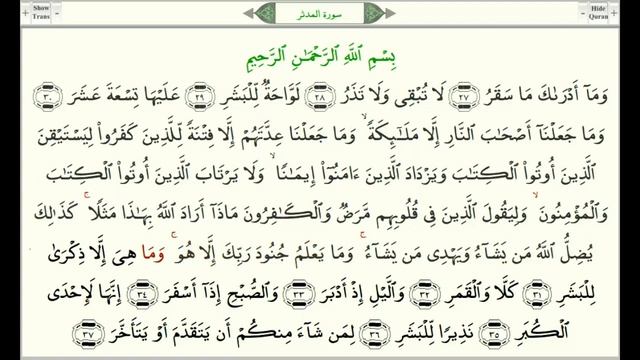 Show
Trans
سورة المدثر
Hide
Quran
بِسْمِ ٱللَّهِ ٱلرَّحْمَـٰنِ ٱلرَّحِيمِ
وَمَآ أَدْرَىٰكَ مَا سَقَرُ ٢٧ لَا تُبْقِى وَلَا تَذَرُ ٢٨ لَوَّاحَةٌ لِّلْبَشَرِ ٢٩ عَلَيْهَا تِسْعَةَ عَشَرَ ٣٠
وَمَا جَعَلْنَآ أَصْحَـٰبَ ٱلنَّارِ إِلَّا مَلَـٰٓئِكَةً ۙ وَمَا جَعَلْنَا عِدَّتَهُمْ إِلَّا فِتْنَةً لِّلَّذِينَ كَفَرُوا۟ لِيَسْتَيْقِنَ
ٱلَّذِينَ أُوتُوا۟ ٱلْكِتَـٰبَ وَيَزْدَادَ ٱلَّذِينَ ءَامَنُوٓا۟ إِيمَـٰنًا ۙ وَلَا يَرْتَابَ ٱلَّذِينَ أُوتُوا۟ ٱلْكِتَـٰبَ
وَٱلْمُؤْمِنُونَ ۙ وَلِيَقُولَ ٱلَّذِينَ فِى قُلُوبِهِم مَّرَضٌ وَٱلْكَـٰفِرُونَ مَاذَآ أَرَادَ ٱللَّهُ بِهَـٰذَا مَثَلًا ۚ كَذَٰلِكَ
يُضِلُّ ٱللَّهُ مَن يَشَآءُ وَيَهْدِى مَن يَشَآءُ ۚ وَمَا يَعْلَمُ جُنُودَ رَبِّكَ إِلَّا هُوَ ۚ وَمَا هِىَ إِلَّا ذِكْرَىٰ
لِلْبَشَرِ ٣١ كَلَّا وَٱلْقَمَرِ ٣٢ وَٱلَّيْلِ إِذْ أَدْبَرَ ٣٣ وَٱلصُّبْحِ إِذَآ أَسْفَرَ ٣٤ إِنَّهَا لَإِحْدَى
ٱلْكُبَرِ ٣٥ نَذِيرًا لِّلْبَشَرِ ٣٦ لِمَن شَآءَ مِنكُمْ أَن يَتَقَدَّمَ أَوْ يَتَأَخَّرَ ٣٧